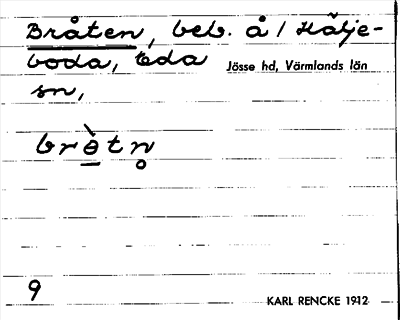 Bråten, beb. å / Hälje-
boda, Eda
Jösse hd, Värmlands län
sn,
brè̱tn̥
9
KARL RENCKE 1912